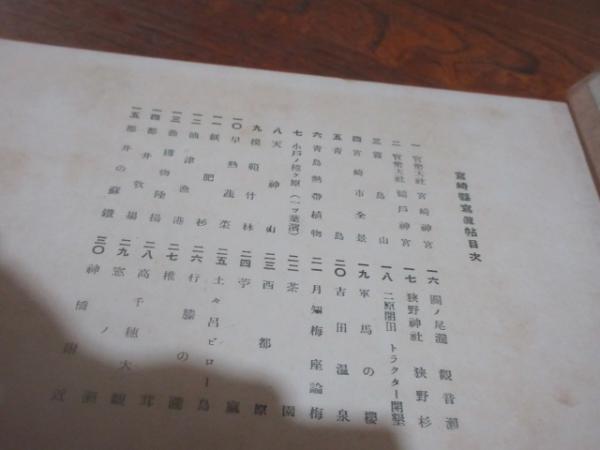 宮崎縣寫眞帖目次
一 官幣大社 宮崎神宮
二 官幣大社 鵜戸神宮
三 霧島山
四 宮崎市全景
五 青島
六 青島熱帶植物
七 小戸ノ橘ヶ原(一ツ葉濱)
八 天神山
九 模範竹林
一〇 早熟蔬菜
一一 飫肥杉
一二 油津漁港
一三 漁獲物陸揚
一四 都井牧場
一五 都井の蘇鐵
一六 關ノ尾瀧 觀音瀬
一七 狹野神社 狹野杉
一八 二原開田 トラクター開墾
一九 軍馬の櫻
二〇 吉田温泉
二一 月知梅座論梅
二二 茶園
二三 西都原
二四 苧麻
二五 土々呂ビロー島
二六 行縢の瀧
二七 椎茸
二八 高千穂大
二九 窓ノ瀬
三〇 神橋附近